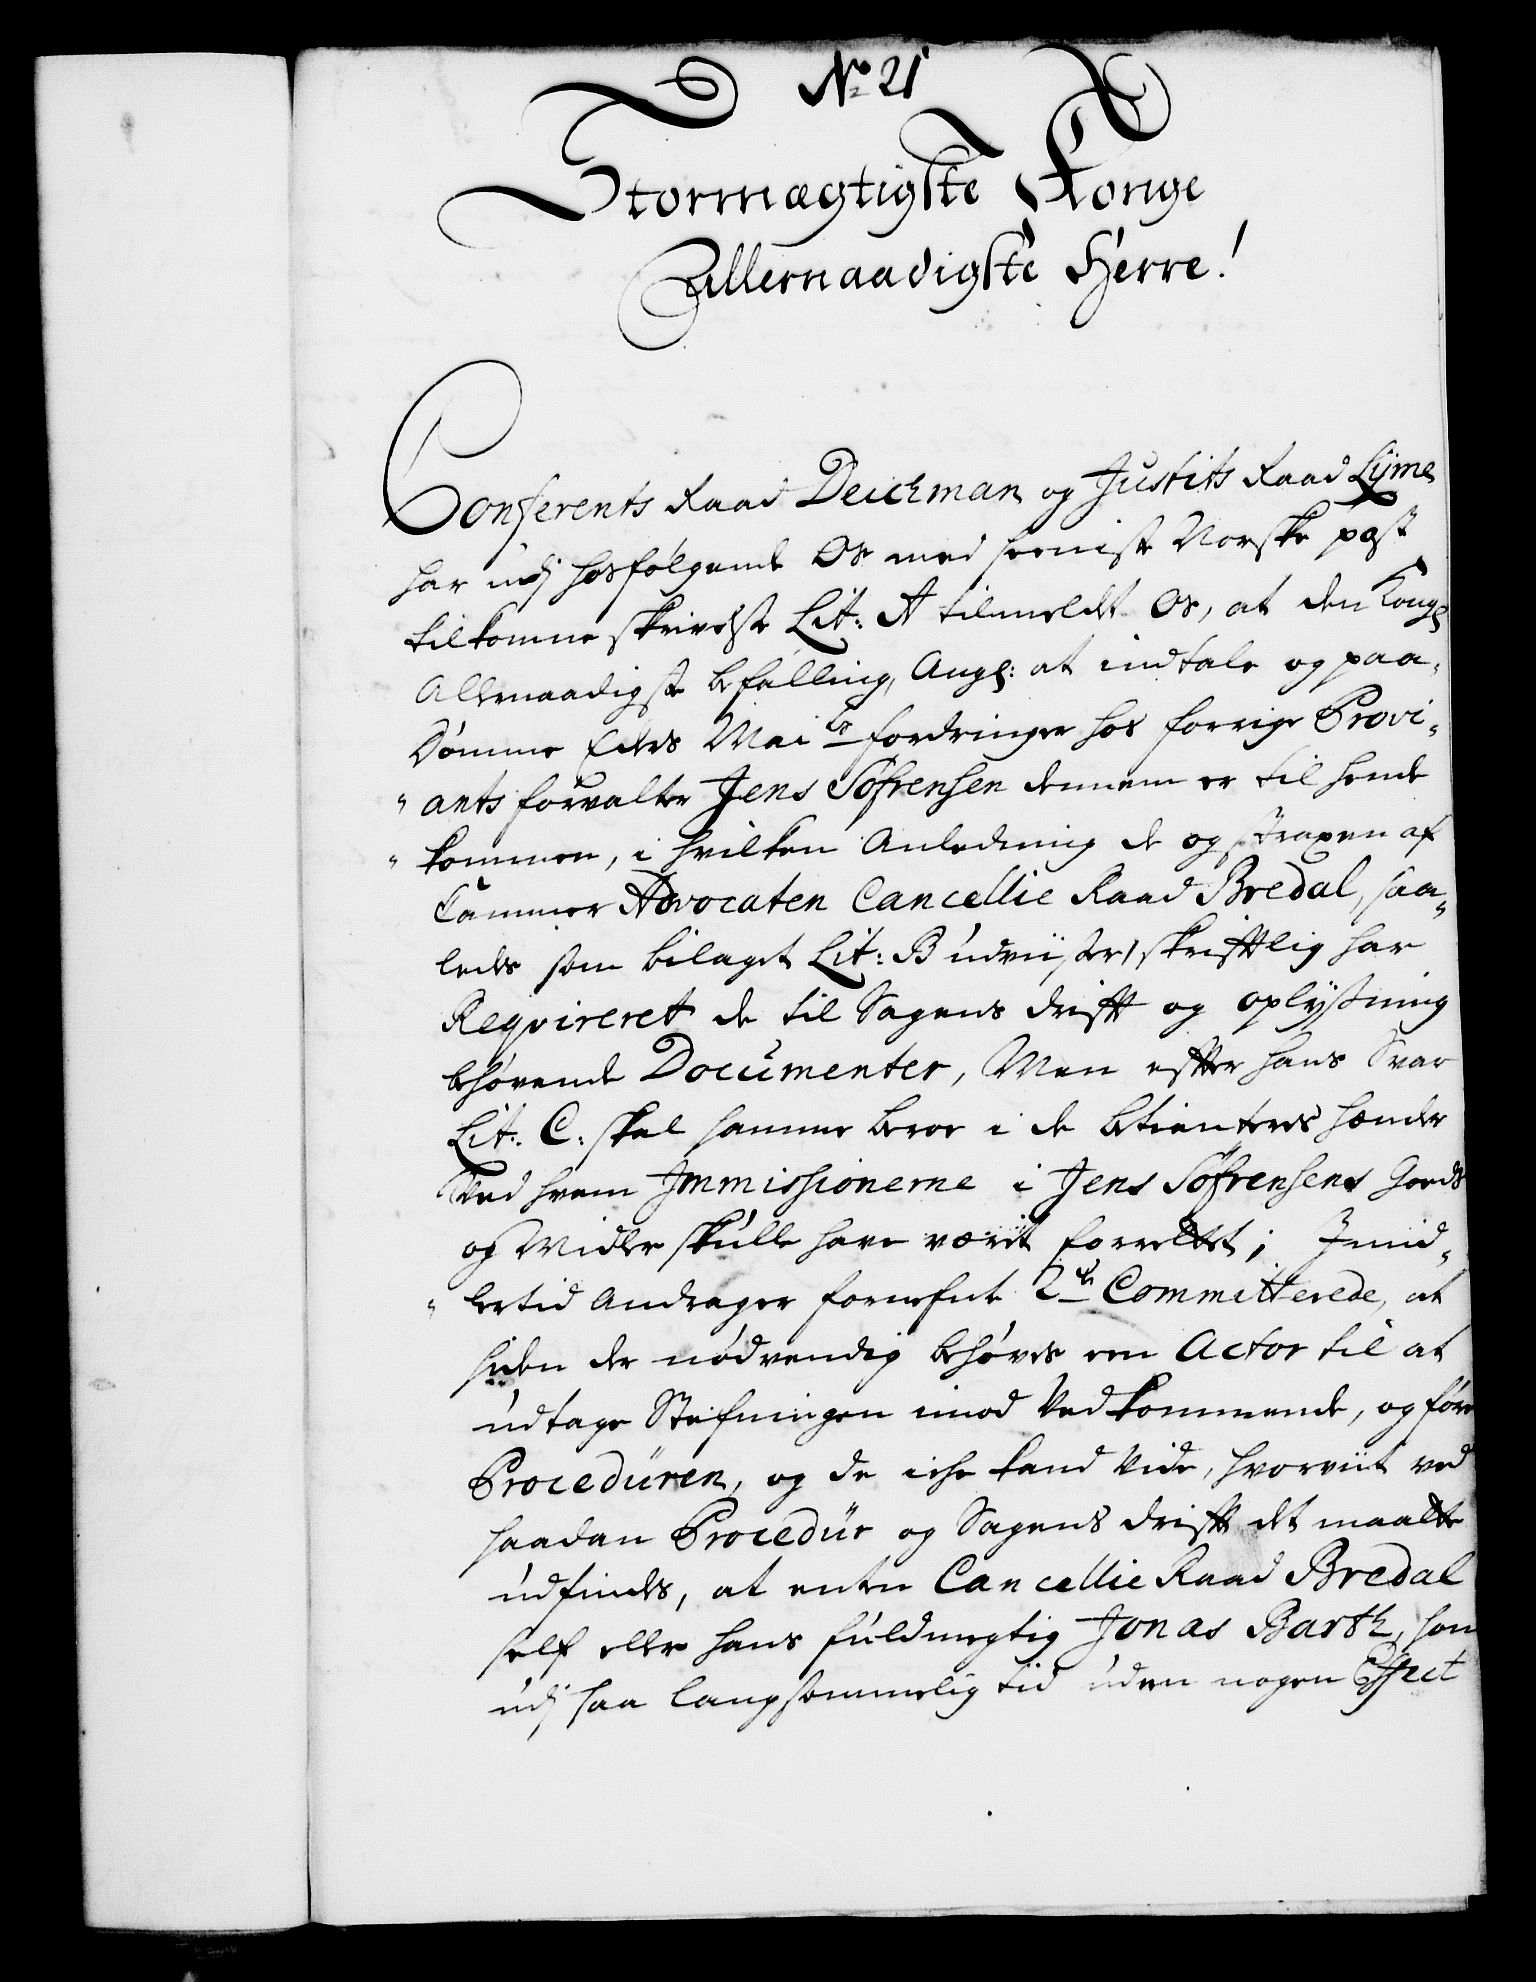 No 21
Stormægtigste Konge
Allernaadigste Herre!
Conferents Raad Deichman og Justits Raad Lÿme
har udj hosfølgende Os med seeniste Norske post
tilkomne skrivelse Lit: A tilmeldt Os, at den Kongl
Allernaadigste befalling, Angl: at indtale og paa-
dømme Eders Maits fordringer hos forrige Provi-
ants forvalter Jens Søfrensen dennem er til hende
kommen, i hvilken Anledning de og straxen af
Cammer Advocaten Cancellie Raad Bredal, saa-
leds som bilaget Lit: B udviiser, skrifftlig har
Reqvireret de til Sagens drifft og oplyßning
behøvende Documenter, Men effter hans Svar
Lit. C: skal samme beroe i de betienteres hænder
Ved hvem Immissionerne i Jens Søfrensens Goeds
og Midler skulle have værit forrettet; Imid-
lertid Andrager fornefnte 2de Committerede, at
siden der nødvendig behøves een Actor til at
udtage Stefningen imod Vedkommende, og føre
Procedüren, og de iche kand Vide, hvorviit ved
saadan Procedür og Sagens drifft det maatte
udfindes, at enten Cancellie Raad Bredal
self eller hans fuldmegtig Jonas Barth, som
udj saa langsommelig tid uden nogen Effect